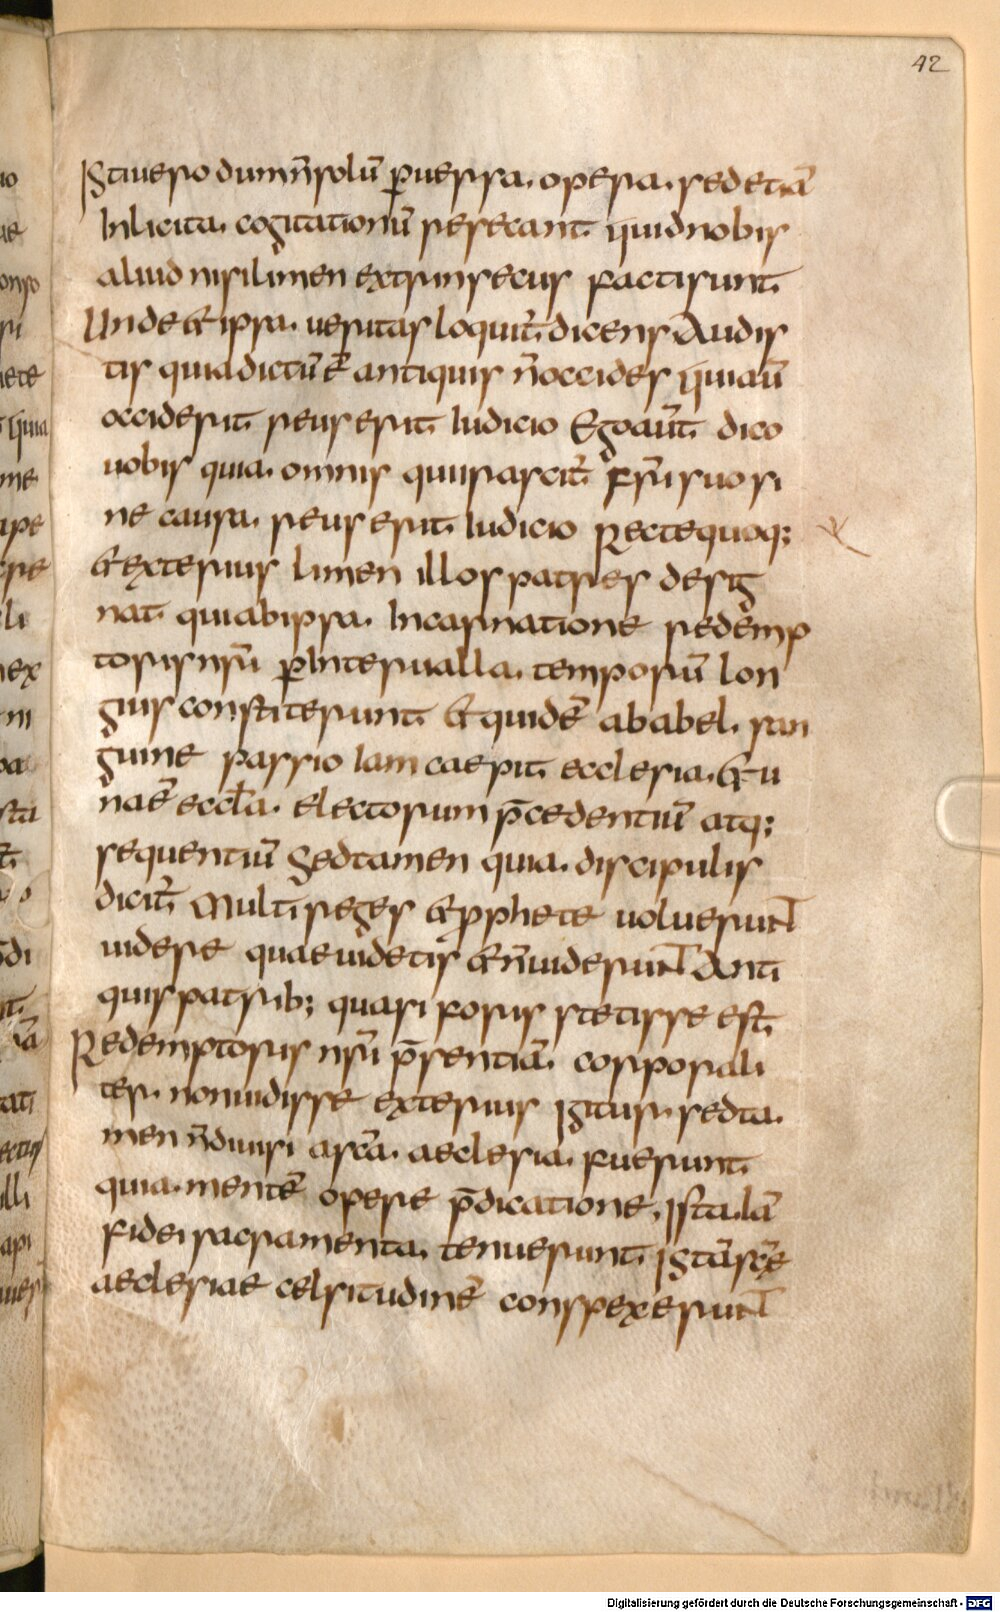 42
Istiuero dum n̄ solū ꝑuersa. opera. sed etiā
Inlicita. cogitationū resecant. quid nobis
aliud nisi limen extrinsecus facti sunt.
Unde & ipsa. ueritas loquit̄. dicens Audis
tis quia dictū ē antiquis n̄ occides qui aū
occiderit. reus erit. Iudicio Ego aūt. dico
uobis quia. omnis qui irascit̄. frī suo si
ne causa. reus erit. Iudicio Recte quoq;
& exterius limen illos patres desig
nat. qui ab ipsa. Incarnatione redemp
toris nrī ꝑ Interualla. temporū lon
gius constiterunt. & quidē ab abel. san
guine passio Iam caepit. ecclesia. & u
na ē eccła. electorum p̄cedentiū atq;
sequentiū Sed tamen quia. discipulis
dicit̄. Multi reges & ꝓphete uoluerunt
uidere quae uidetis & n̄ uiderunt Anti
quis patrib; quasi foris stetisse est.
Redemptoris nrī p̄sentiā. corporali
ter. non uidisse exterius igitur. sed ta.
men n̄ diuisi a sc̄a. aeclesia. fuerunt.
quia. mentē opere p̄dicatione, ista. Iā
fidei sacramenta. tenuerunt. istā sc̄e
aeclesiae celsitudinē conspexerunt
Digitalisierung gefördert durch die Deutsche Forschungsgemeinschaft - DFG